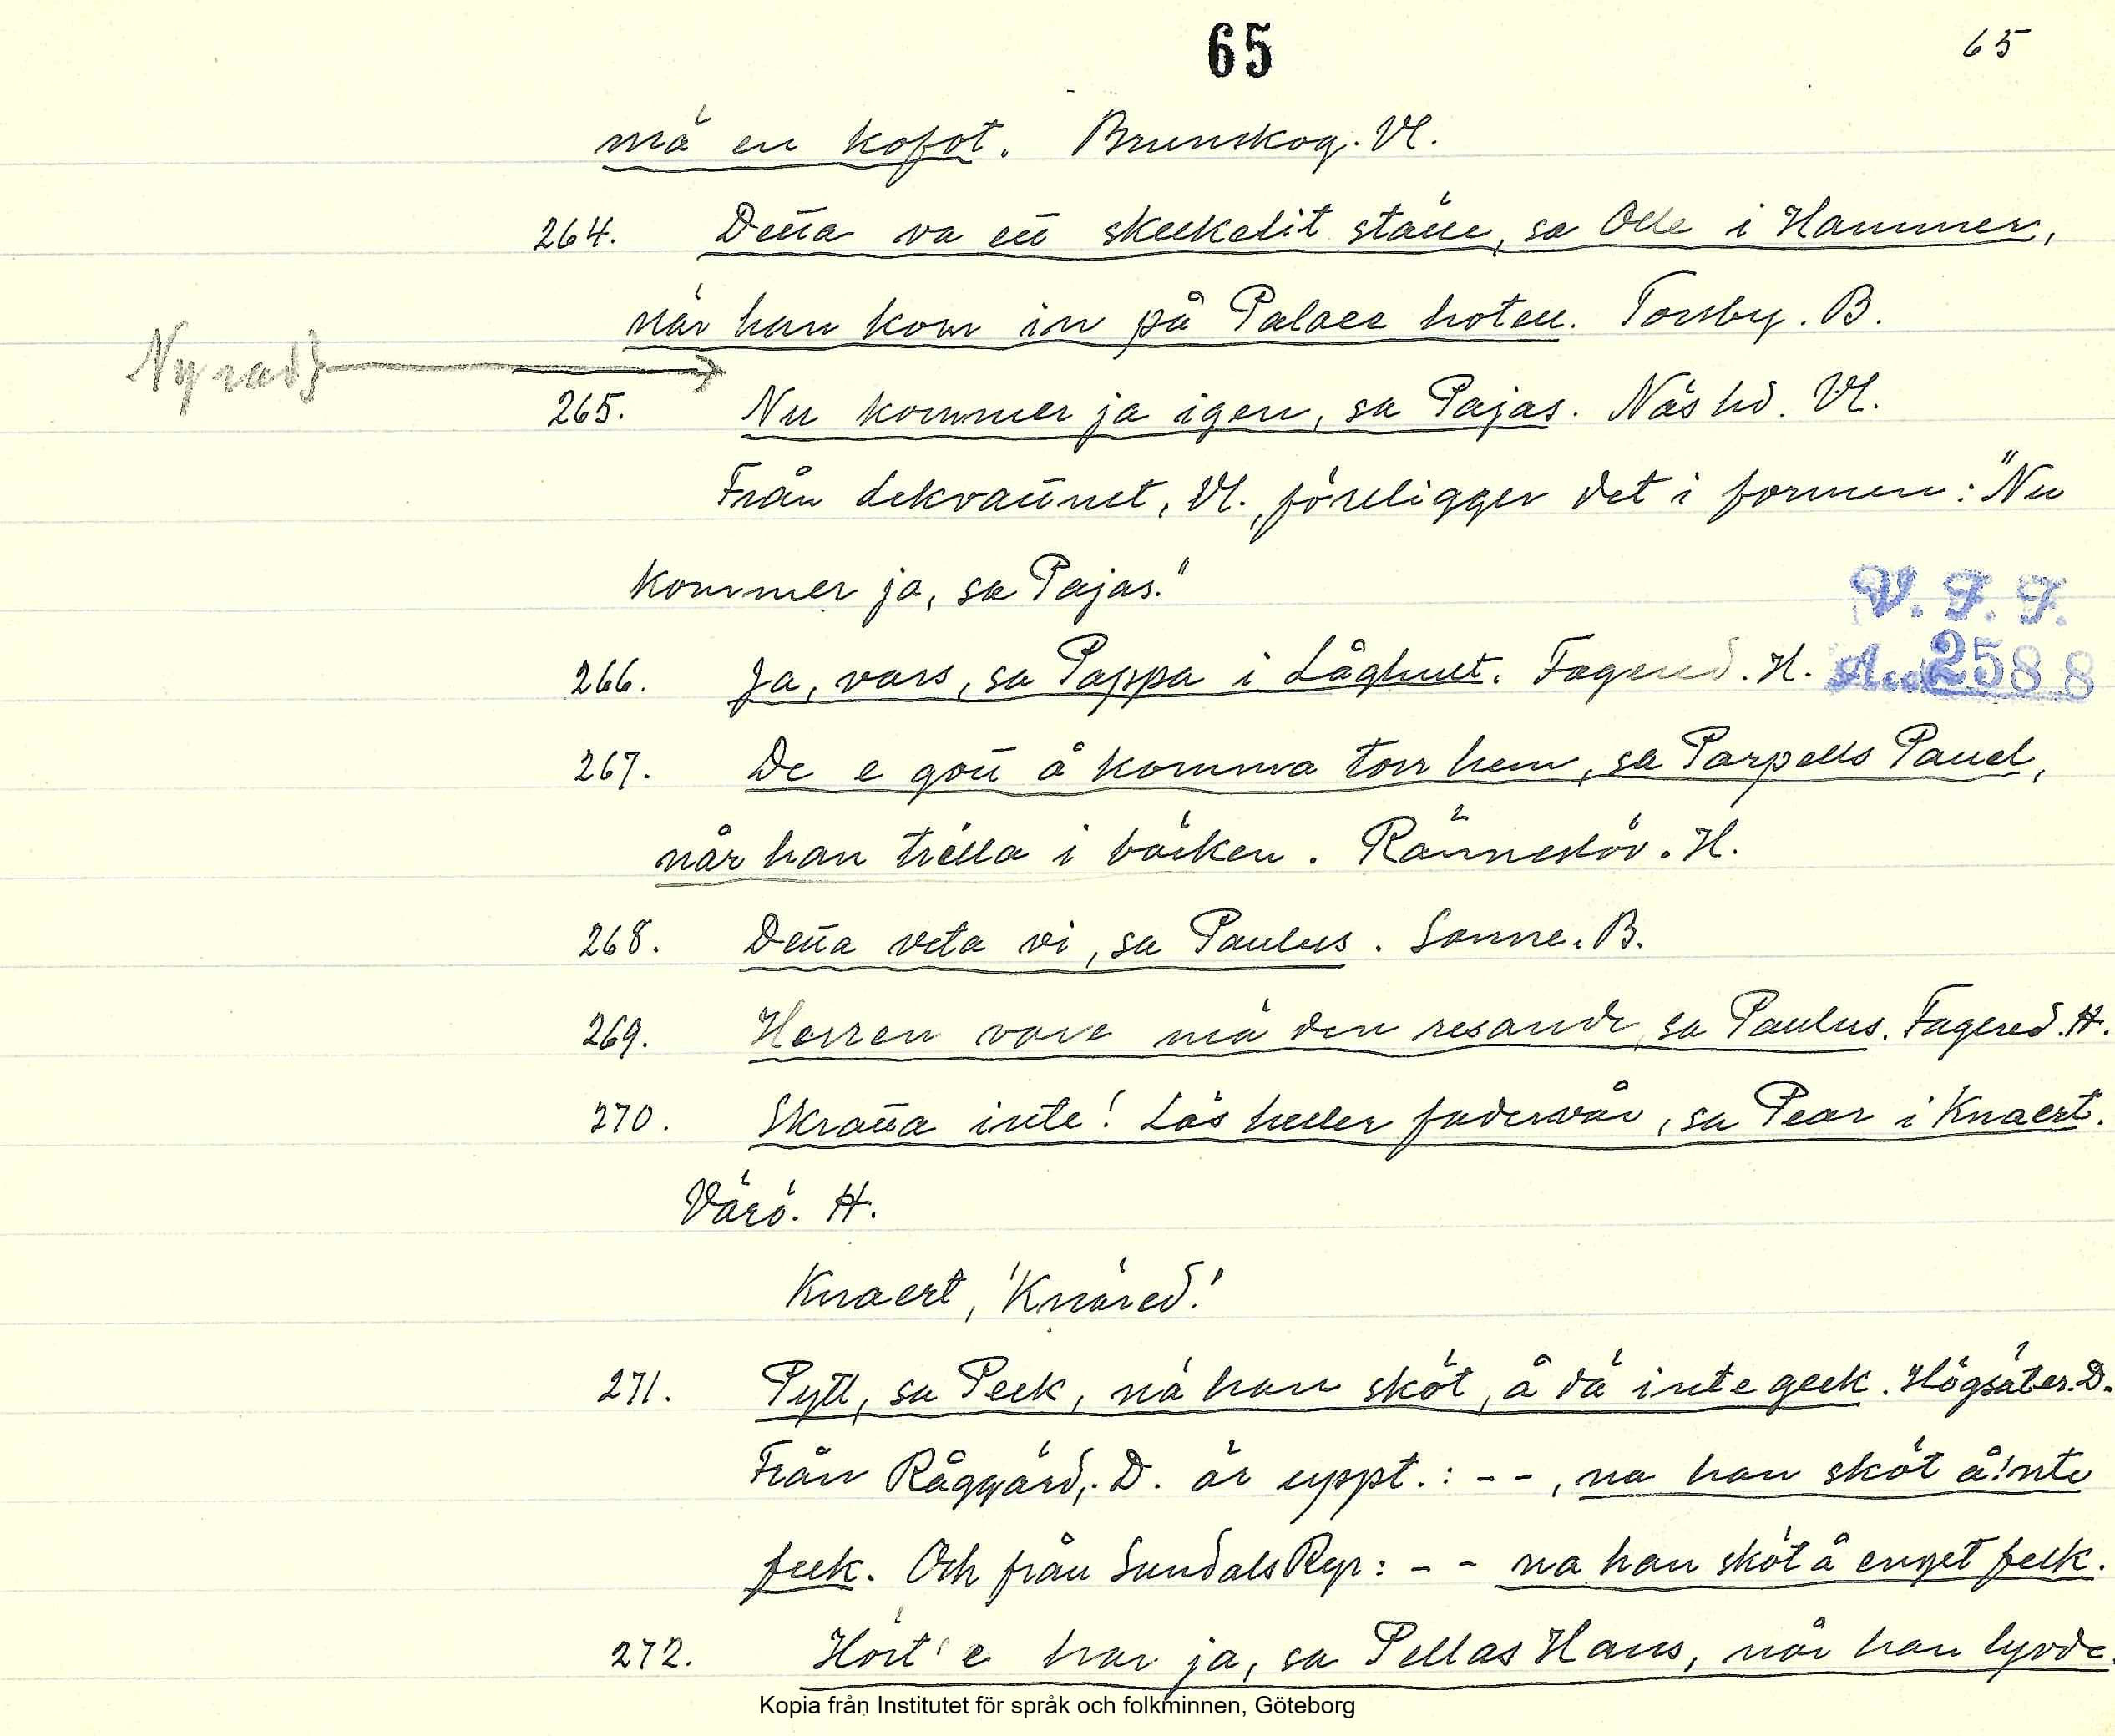 65
65
mä en kofot. Brunskog. Vl.
264. Detta va ett skukelit ställe, sa Olle i Hammer,
när han kom in på Palace hotell. Torsby. B.
Ny rad
265. Nu kommer ja igen, sa Pajas. Näs hd. Vl.
Från Lekvattnet, Vl., föreligger det i formen: "Nu
kommer ja, sa Pajas."
V. F. F.
266. Ja, vars, sa Pappa i Låghult. Fagered. H.
2588
267. De e gott å komma torr hem, sa Parpells Paul,
når han trilla i bäcken. Ränneslöv. H.
268. Detta veta vi, sa Paulus. Sanne. B.
269. Herren vare mä den resande, sa Paulus. Fagered. H.
270. Skratta inte! Läs heller fadervår, sa Pear i Knaert.
Värö. H.
Knaert, 'Knäred.'
271. Pytt, sa Pekk, nä han sköt, å dä inte gekk. Högsäter. D.
Från Råggärd, D. är uppt.: - -, na han sköt å inte
fekk. Och från Sundals Ryr: - - na han sköt å enget fekk.
272. Hört e har ja, sa Pellas Hans, når han lyvde.
Kopia från Institutet för språk och folkminnen, Göteborg